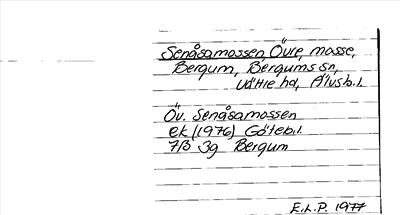 Senåsamossen Övre, mosse,
Bergum, Bergums sn,
Vättle hd, Älvsb.l.
Öv. Senåsamossen
ek (1976) Göteb.l.
7B 3g Bergum
E.L.P. 1977